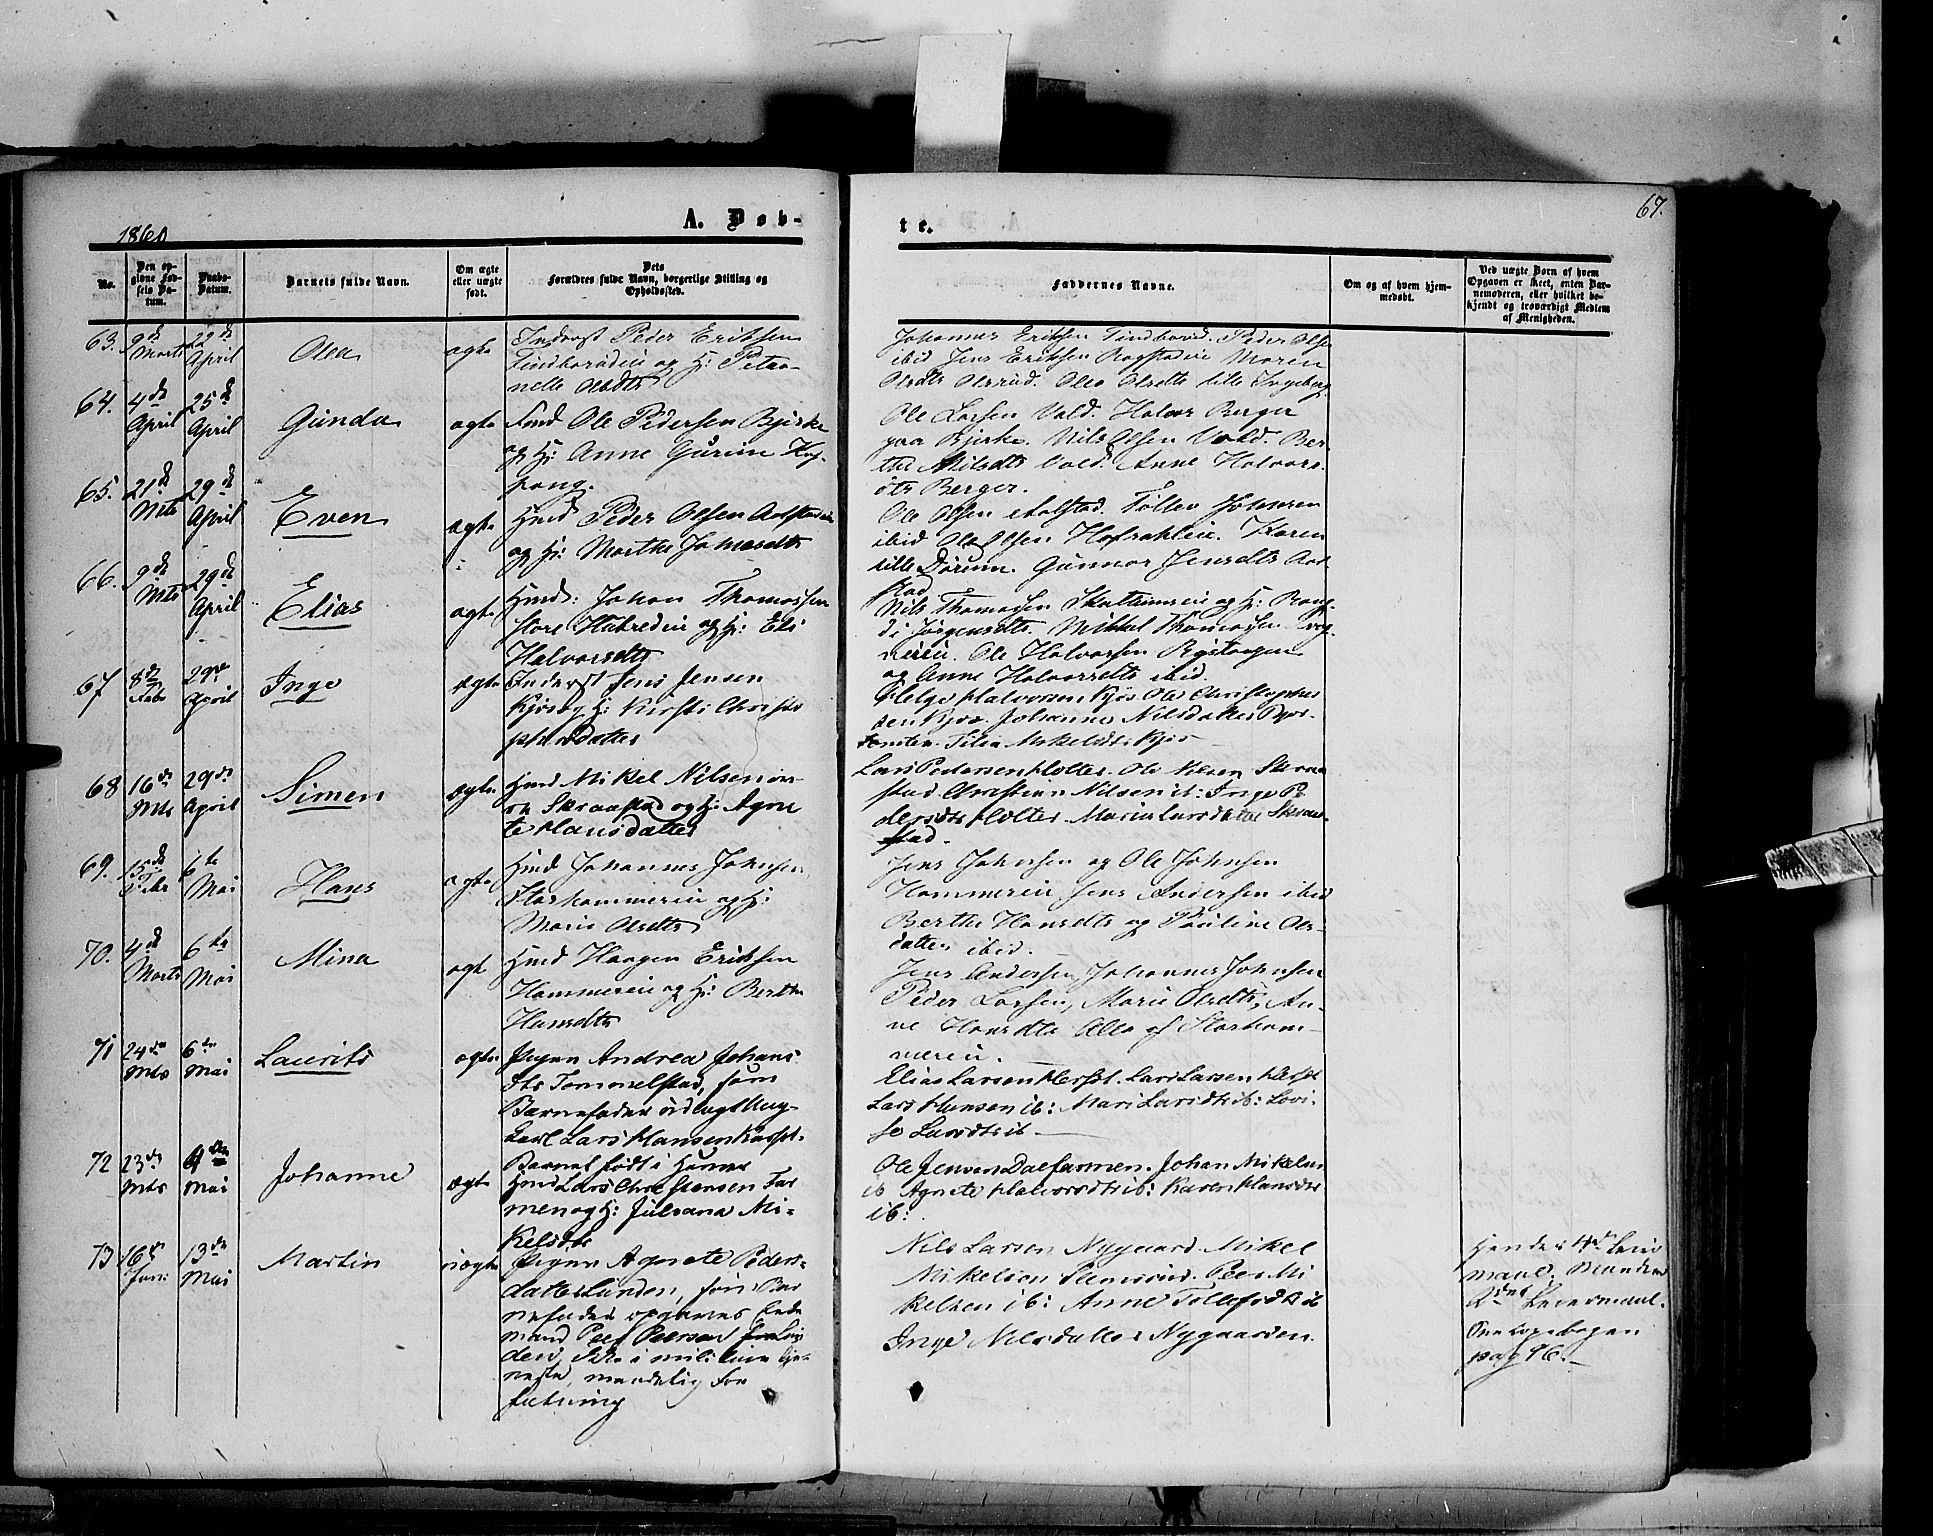 67.
1860
A. Døb-
te.
No.
Den op-
givne Fød-
sels Da-
tum.
Daabs-
Datum.
Barnets fulde Navn.
Om ægte
eller uægte
født.
Dets
Forældres fulde Navn, borgerlige Stilling og
Opholdssted.
Faddernes Navne.
Om og af hvem hjem-
medøbt.
Ved uægte Børn af hvem
Opgaven er skeet, enten Bar-
nemoderen, eller hvilket be-
kjendt og troværdigt Medlem
af Menigheden.
63.
9de
Marts
22de
April
Olea
ægte
Inderst Peder Eriksen
og H: Petro-
nelle Olsdtr
Johannes Eriksen Peder Olsen
ibid Jens Eriksen Maren
Olsdtr Olea Olsdtr lille Ingeberg
64.
4de
April
25de
April
Gunda
ægte
Hmd Ole Pedersen Bjirke
og H: Anne Gurine Kop-
pang.
Ole Larsen Vold. Halvor Berger
paa Bjirke. Nils Olsen Vold. Ber-
the Nilsdtr Vold. Anne Halvors-
dtr Berger.
65.
21de
Mts
29de
April
Even
ægte
Hmd Peder Olsen Aalstadeie
og H: Marthe Johnsdtr
Ole Olsen Aalstad. Tollev Johnsen
ibid Ole Olsen Karen
lille Dørum. Gunnor Jensdtr Aal-
stad
66.
9de
Mts
29de
April
Elias
ægte
Hmd: Johan Thomassen
store og H: Eli
Halvorsdtr
Nils Thomassen og H: Rang-
di Jørgensdtr. Mikkel Thomassen
Ole Halvorsen
og Anne Halvorsdtr ibid.
67
8de
Febr
29de
April
Inge
ægte
Inderst Jens Jensen
Kjøs og H: Kirsti Christo
phersdatter
Helge Halvorsen Kjøs Ole Christopher
sen Kjøs. Johanne Nilsdatter
68
16de
Mts
29de
April
Simen
ægte
Hmd Mikel Nilsen
Skraastad og H: Agne
te Hansdatter
Lars Pedersen Holter. Ole Nilsen Skraa
stad. Christian Nilsen ib: Inge Pe
dersdtr Holter. Maria Larsdatter Skraa-
stad.
69.
15de
Febr
6te
Mai
Hans
ægte
Hmd Johannes Johnsen
Storhammereie og H:
Marie Olsdtr
Jens Johnsen og Ole Johnsen
Hammereie Jens Andersen ibid
Berthe Hansdtr og Pauline Ols-
datter ibid.
70.
4de
Marts
6te
Mai
Mina
ægt
Hmd Haagen Eriksen
Hammereie og H: Berthe
Hansdtr
Jens Andersen, Johannes Johnsen
Peder Larsen, Marie Olsdtr, An-
ne Hansdtr Alle af Storham-
mereie.
71
24de
Mts
6te
Mai
Laurits
ægte
Pigen Andrea Johans-
dtr Tommelstad, som
Barnefader udlagt Ung-
karl Lars Hansen
Barnet født i Hamar
Elias Larsen Lars Larsen
Lars Hansen ib: Mari Larsdtr ib: Lovi-
se Larsdtr ib
72
23de
Mts
4de
Mai
Johanne
ægte
Hmd Lars Christensen Far
men og H: Juliana Mi-
kelsdtr
Ole Jensen Dalfarmen. Johan Mikelsen
ib Agnete Halvorsdtr ib: Karen Hansdtr
ib:
73
16de
Jan:
13de
Mai
Martin
uægte
Pigen Agnete Peders-
datter Linden, som Bar
nefader opgives Ende
mand Peer Peersen Lin
den, Ikke i militair tje-
neste, mundtlig For
klaring
Nils Larsen Nygaard. Mikel
Mikelsen Peer Mi
kelsen ib: Anne Tollefsdtr ib
Inge Nilsdatter Nygaarden
Hendes 1ste Leier
maal. Mandens
2det Leiermaal.
pag 96.